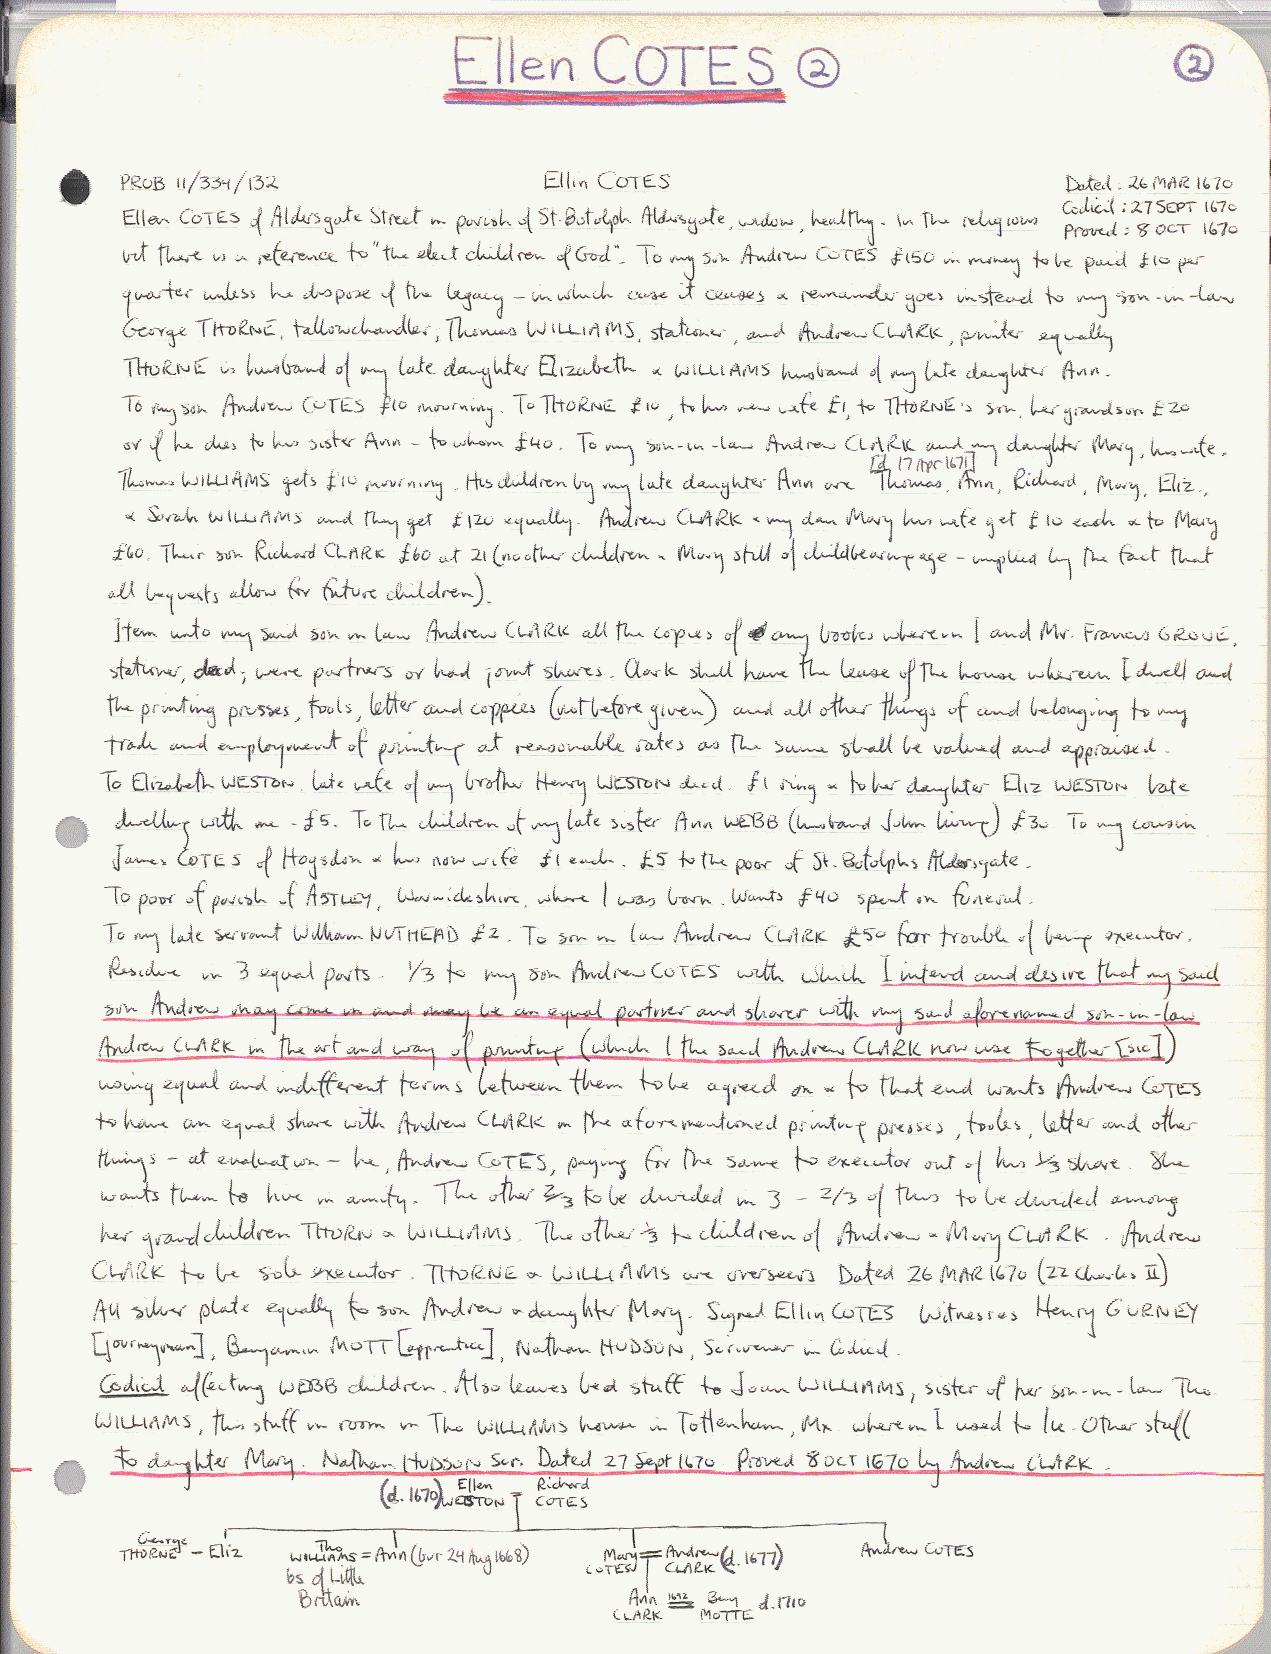 Ellen COTES ②
②
PROB 11/334/132
Ellin COTES
Dated: 26 MAR 1670
Codicil: 27 SEPT 1670
Proved: 8 OCT 1670
Ellen COTES of Aldersgate Street in parish of St. Botolph Aldersgate, widow, healthy. In the religious
bit there is a reference to "the elect children of God". To my son Andrew COTES £150 in money to be paid £10 per
quarter unless he dispose of the legacy - in which case it ceases & remainder goes instead to my son-in-law
George THORNE, tallowchandler, Thomas WILLIAMS, stationer, and Andrew CLARK, printer equally
THORNE is husband of my late daughter Elizabeth & WILLIAMS husband of my late daughter Ann.
To my son Andrew COTES £10 mourning. To THORNE £10, to his new wife £1, to THORNE's son, her grandson £20
or if he dies to his sister Ann - to whom £40. To my son-in-law Andrew CLARK and my daughter Mary, his wife.
[d. 17 Apr 1671]
Thomas WILLIAMS gets £10 mourning. His children by my late daughter Ann are Thomas, Ann, Richard, Mary, Eliz.,
& Sarah WILLIAMS and they get £120 equally. Andrew CLARK & my dau Mary his wife get £10 each & to Mary
£60. Their son Richard CLARK £60 at 21 (no other children & Mary still of childbearing age - implied by the fact that
all bequests allow for future children).
Item unto my said son in law Andrew CLARK all the copies of any books wherein I and Mr. Francis GROVE,
stationer, decd; were partners or had joint shares. Clark shall have the lease of the house wherein I dwell and
the printing presses, tools, letter and coppies (not before given) and all other things of and belonging to my
trade and employment of printing at reasonable rates as the same shall be valued and appraised.
To Elizabeth WESTON, late wife of my brother Henry WESTON decd. £1 ring & to her daughter Eliz WESTON late
dwelling with me - £5. To the children of my late sister Ann WEBB (husband John living) £30. To my cousin
James COTES of Hogsdon & his now wife £1 each. £5 to the poor of St. Botolphs Aldersgate.
To poor of parish of ASTLEY, Warwickshire, where I was born. Wants £40 spent on funeral.
To my late servant William NUTHEAD £2. To son in law Andrew CLARK £50 for trouble of being executor.
Residue in 3 equal parts. 1/3 to my son Andrew COTES with which I intend and desire that my said
son Andrew may come in and may be an equal partner and sharer with my said aforenamed son-in-law
Andrew CLARK in the art and way of printing (which I the said Andrew CLARK now use together [sic])
using equal and indifferent terms between them to be agreed on & to that end wants Andrew COTES
to have an equal share with Andrew CLARK in the aforementioned printing presses, tooles, letter and other
things - at evaluation - he, Andrew COTES, paying for the same to executor out of his 1/3 share. She
wants them to live in amity. The other 2/3 to be divided in 3 - 2/3 of this to be divided among
her grandchildren THORN & WILLIAMS. The other 1/3 to children of Andrew & Mary CLARK. Andrew
CLARK to be sole executor. THORNE & WILLIAMS are overseers Dated 26 MAR 1670 (22 Charles II)
All silver plate equally to son Andrew & daughter Mary. Signed Ellin COTES Witnesses Henry GURNEY
[journeyman], Benjamin MOTT [apprentice], Nathan HUDSON, Scrivener in Codicil.
Codicil affecting WEBB children. Also leaves bed stuff to Joan WILLIAMS, sister of her son-in-law Tho.
WILLIAMS, this stuff in room in Tho WILLIAMS house in Tottenham, Mx wherein I used to lie. Other stuff
to daughter Mary. Nathan HUDSON Scr. Dated 27 Sept 1670 Proved 8 OCT 1670 by Andrew CLARK.
(d. 1670) Ellen WESTON = Richard COTES
George THORNE - Eliz
Tho WILLIAMS = Ann (bur 24 Aug 1668)
bs of Little
Britain
Mary COTES = Andrew CLARK (d. 1677)
Andrew COTES
Ann CLARK 1692 = Benj MOTTE d. 1710